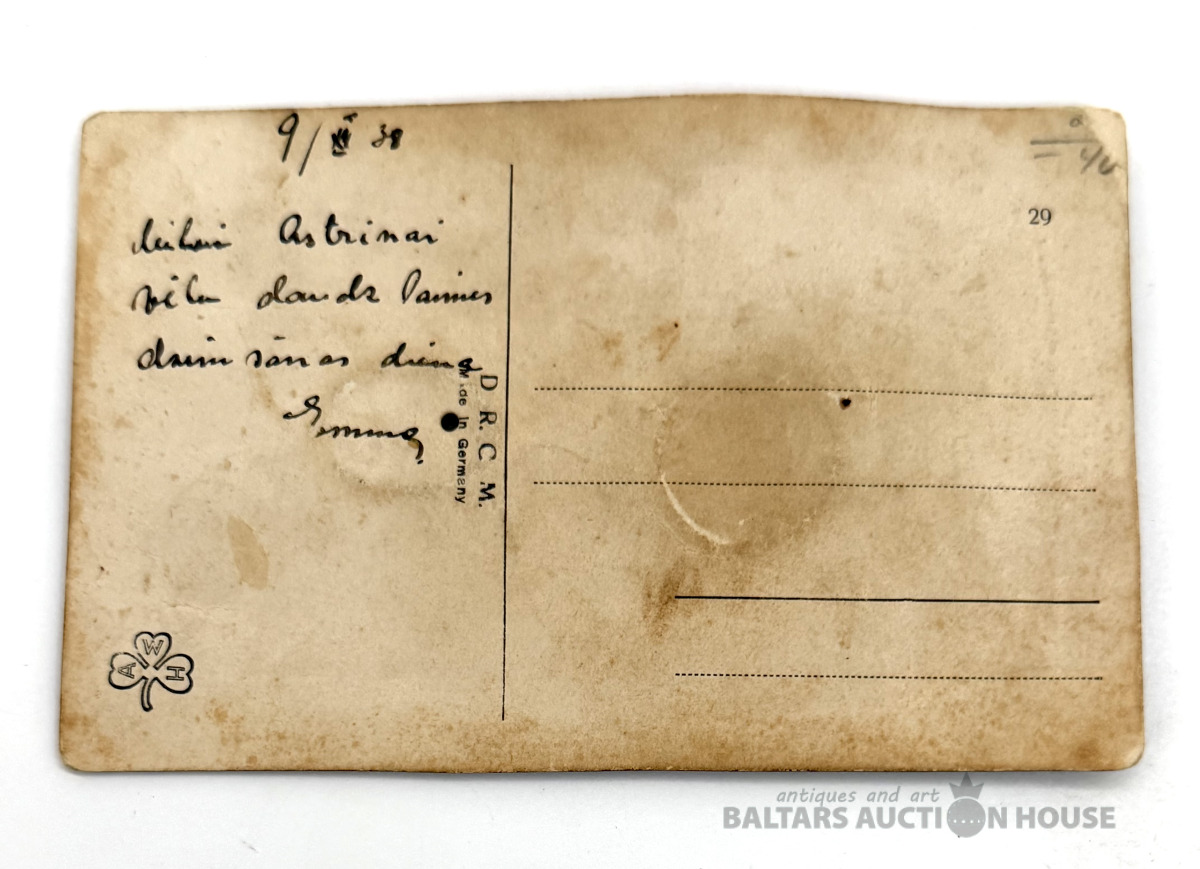 9/XII 38
Astrinai
vēlu daudz laimes
dzimšanas dienā
Emma
D. R. C. M.
Made in Germany
29
A W H
antiques and art
BALTARS AUCTION HOUSE